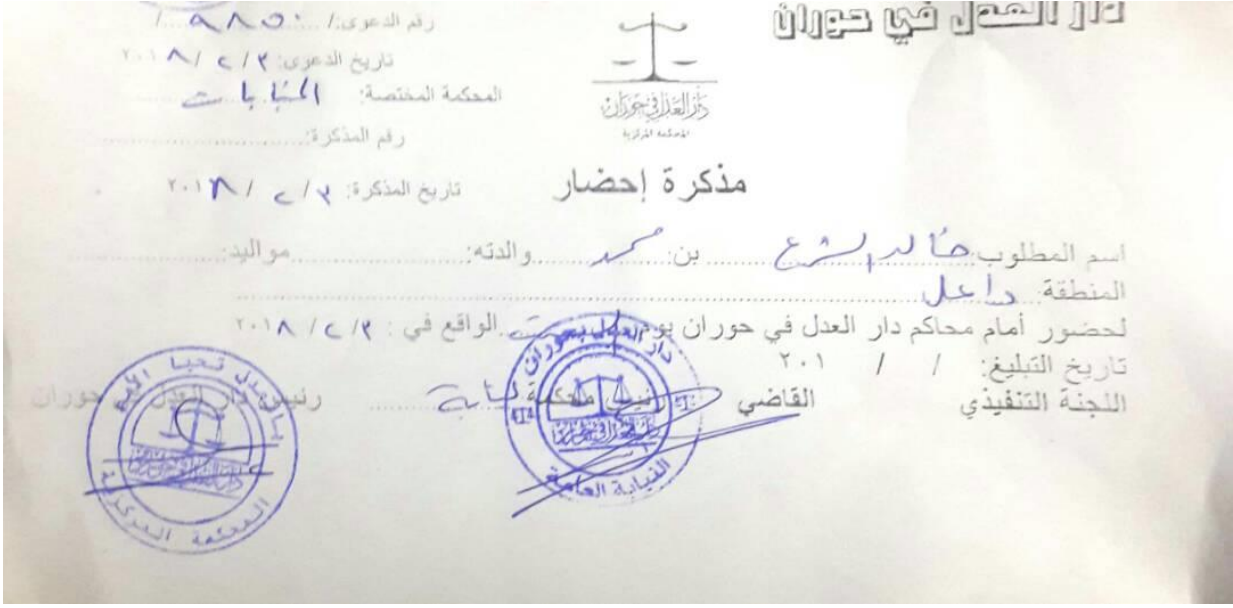 دار العدل في حوران
دار العدل في حوران
المحكمة المركزية
رقم الدعوى: / ٩٨٥٠ /
تاريخ الدعوى: ٣ / ٢ / ٢٠١٨
المحكمة المختصة:
رقم المذكرة:
مذكرة إحضار
تاريخ المذكرة: ٣ / ٢ / ٢٠١٨
اسم المطلوب: خالد الشرع بن: محمد والدته: مواليد:
المنطقة داعل
لحضور أمام محاكم دار العدل في حوران يوم الواقع في : ٣ / ٢ / ٢٠١٨
تاريخ التبليغ: / / ٢٠١
اللجنة التنفيذي القاضي رئيس محكمة رئيس دار العدل في حوران
دار العدل بحوران
النيابة العامة
بالعدل تحيا الأمم
المحكمة المركزية